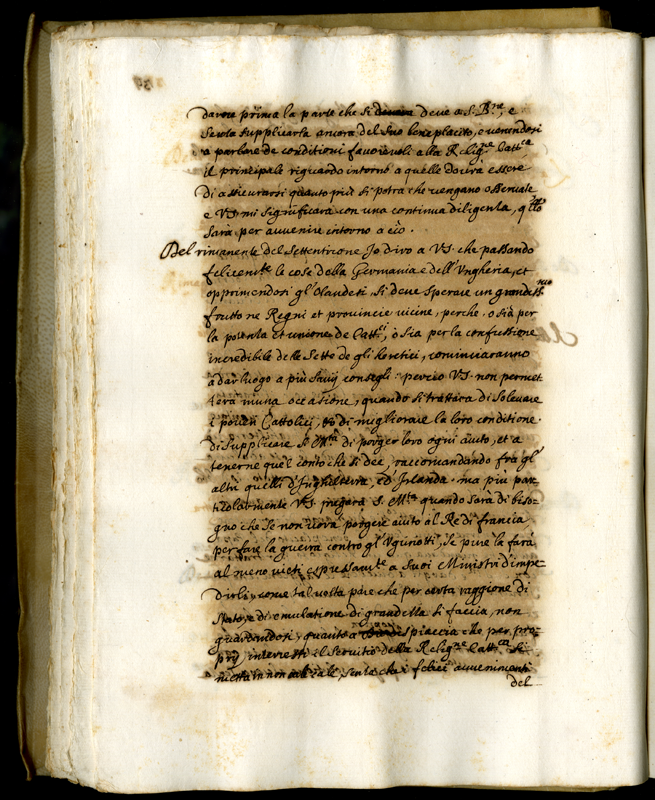 darne prima la parte che si deve a S. B.ne, e
Senza supplicarla ancora del suo beneplacito, e venendosi
a parlare de conditioni favorevoli alla Relig.ne Catt.ca
il principale riguardo intorno a quelle dovrà essere
di assicurarsi quanto più si potrà che vengano osservate
e V.S. mi significarà con una continua diligenza, q.llo
Sarà per avvenire intorno a ciò.
Del rimanente del Settentrione Io dirò a V.S. che passando
felicem.te le cose della Germania e dell'Ungheria, et
opprimendosi gl'Olandesi, si deve sperare un grandiss.mo
frutto ne Regni et provincie vicine, perche, o sia per
la potenza et unione de Catt.ci, ò sia per la confusione
incredibile delle Sette de gli heretici, cominciaranno
a dar luogo a più savij consegli: perciò V.S. non permet
terà niuna occasione, quando si trattarà di sollevare
i poveri Cattolici, di migliorare la loro conditione
di supplicare S. M.tà di porger loro ogni aiuto, et a
tenerne quel conto che si dee, raccomandando fra gl'
altri quelli d'Inghilterra, ed'Irlanda. ma più par
ticolarmente V.S. pregarà S. M.tà quando sarà di biso-
gno che se non vorrà porgere aiuto al Re di francia
per fare la guerra contro gl'Ugonotti, se pure la farà
al meno vieti espressam.te a suoi Ministri d'impe-
dirli, come tal volta pare che per certa raggione di
stato, e di emulatione di grandezza si faccia, non
guardandosi quanto a dispiaccia che per pro-
prij interessi il servitio della Relig.ne Catt.ca si
metta in non cale, senza che i felici avvenimenti
del